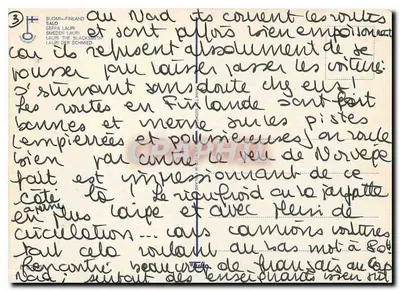 3
SUOMI-FINLAND
SALO
SEPPÄ LAURI
SMEDEN LAURI
LAURI, THE BLACKSMITH
LAURI DER SCHMIED
au Nord ils courent les routes
et sont parfois bien
car ils refusent absolument de se
pousser pour laisser passer les voitures
s'estimant sans doute chez eux!
Les routes en Finlande sont fort
bonnes et même sur les pistes
empierrées et poussiéreuses on roule
bien par contre le peu de Norvège
fait est impressionnant de ce
côté là
plus large et avec
circulation... au camions voitures
tout cela roulant au
Rencontré beaucoup de français au Cap
Nord; surtout des enseignants bien sûr